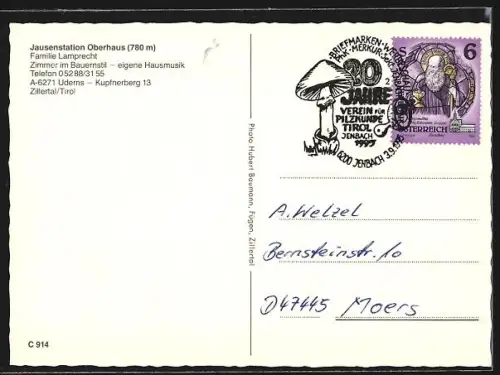 Jausenstation Oberhaus (780 m)
Familie Lamprecht
Zimmer im Bauernstil – eigene Hausmusik
Telefon 05288/3155
A-6271 Uderns – Kupfnerberg 13
Zillertal/Tirol
BRIEFMARKEN-
20
JAHRE
VEREIN FÜR
PILZKUNDE
TIROL
JENBACH
1995
6200 JENBACH
S 6
ÖSTERREICH
Photo Hubert Baumann, Fügen, Zillertal
A. Welzel
Bernsteinstr. 10
D 47445 Moers
C 914